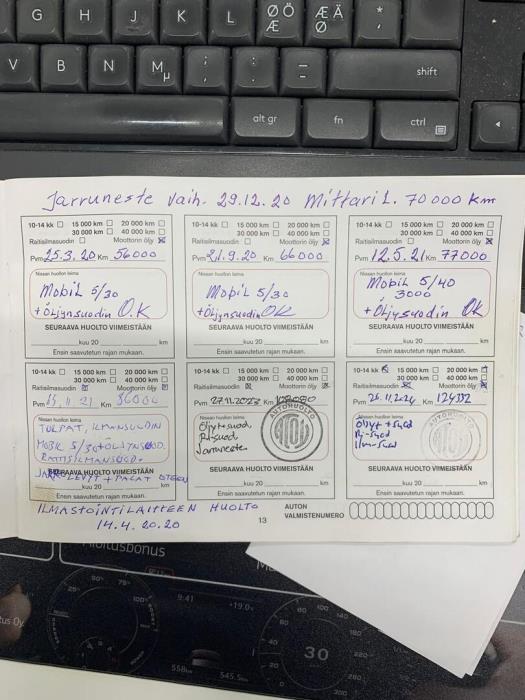 G H J K L Ø Ö Æ Æ Ä Ø * '
V B N M µ ; , : . – _ shift
alt gr fn ctrl
Jarruneste Vaih. 29.12.20 Mittari l. 70000 km
10-14 kk 15 000 km 20 000 km
30 000 km 40 000 km
Raitisilmasuodin Moottorin öljy
Pvm 25.3.20 Km 56000
Nissan huollon leima
Mobil 5/30
+ Öljynsuodin O.K
SEURAAVA HUOLTO VIIMEISTÄÄN
kuu 20 km
Ensin saavutetun rajan mukaan.
10-14 kk 15 000 km 20 000 km
30 000 km 40 000 km
Raitisilmasuodin Moottorin öljy
Pvm 21.9.20 Km 66000
Nissan huollon leima
Mobil 5/30
+ Öljynsuodin OK
SEURAAVA HUOLTO VIIMEISTÄÄN
kuu 20 km
Ensin saavutetun rajan mukaan.
10-14 kk 15 000 km 20 000 km
30 000 km 40 000 km
Raitisilmasuodin Moottorin öljy
Pvm 12.5.21 Km 77000
Nissan huollon leima
Mobil 5/40
3000
+ Öljysuodin OK
SEURAAVA HUOLTO VIIMEISTÄÄN
kuu 20 km
Ensin saavutetun rajan mukaan.
10-14 kk 15 000 km 20 000 km
30 000 km 40 000 km
Raitisilmasuodin Moottorin öljy
Pvm 15.11 21 Km 86000
Nissan huollon leima
TULPAT, ILMANSUODIN
MOBIL 5/30+ÖLJYNSUOD.
RAITISILMANSUOD.
SEURAAVA HUOLTO VIIMEISTÄÄN
kuu 20 km
Ensin saavutetun rajan mukaan.
10-14 kk 15 000 km 20 000 km
30 000 km 40 000 km
Raitisilmasuodin Moottorin öljy
Pvm 27.11.2023 Km
Nissan huollon leima
Öljyt+suod,
Ri-suod
Jarruneste
AUTOHUOLTO
SEURAAVA HUOLTO VIIMEISTÄÄN
kuu 20 km
Ensin saavutetun rajan mukaan.
10-14 kk 15 000 km 20 000 km
30 000 km 40 000 km
Raitisilmasuodin Moottorin öljy
Pvm 26.11.2024 Km 124332
Nissan huollon leima
Öljyt + Suod
Ri-Suod
Ilm-Suod
AUTOHUOLTO
SEURAAVA HUOLTO VIIMEISTÄÄN
kuu 20 km
Ensin saavutetun rajan mukaan.
ILMASTOINTILAITTEEN HUOLTO
14.4.2020
13
AUTON
VALMISTENUMERO
9:41 +19.0
558 545.5
30